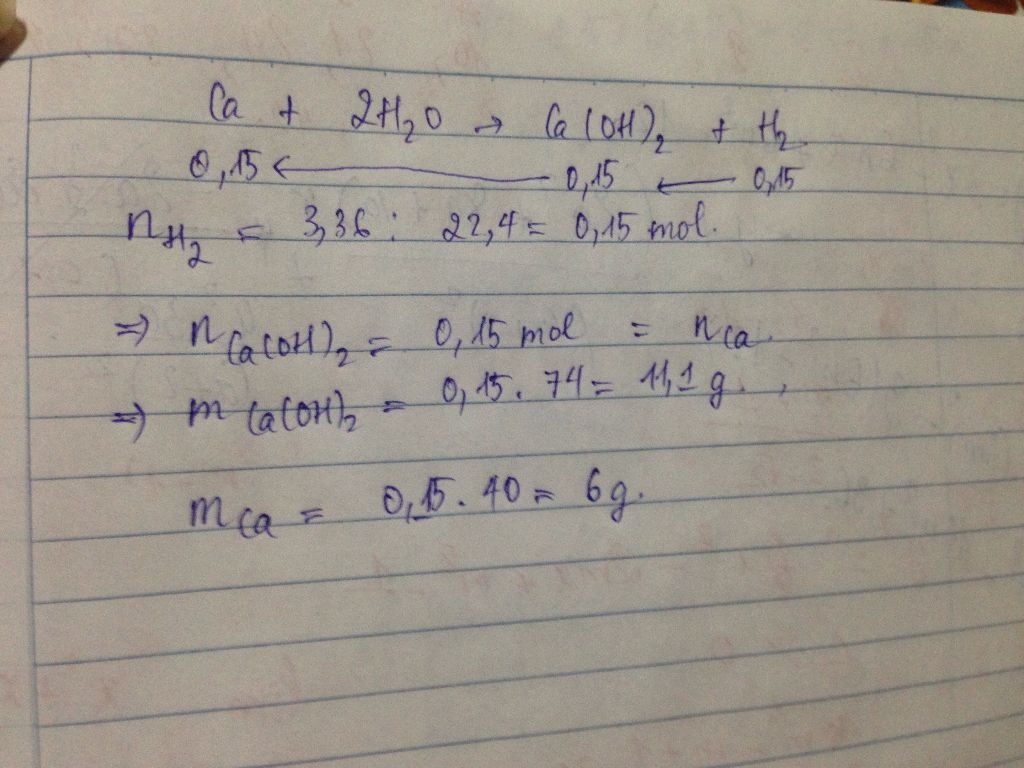 Ca + 2H₂O → Ca(OH)₂ + H₂
0,15 ← 0,15 ← 0,15
nH₂ = 3,36 : 22,4 = 0,15 mol.
⇒ nCa(OH)₂ = 0,15 mol = nCa.
⇒ mCa(OH)₂ = 0,15 . 74 = 11,1 g.
mCa = 0,15 . 40 = 6g.